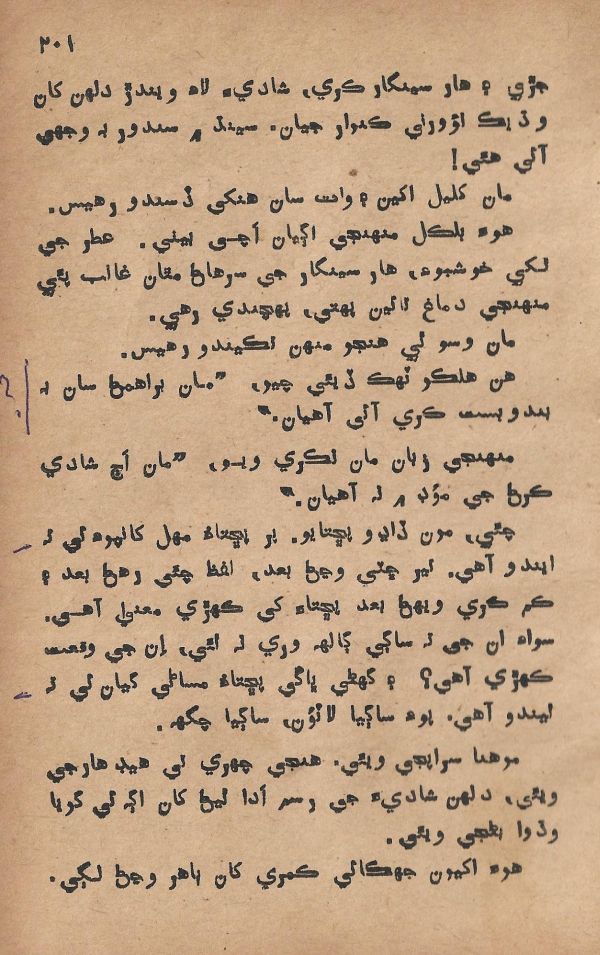 ٢٠١
جڙي ۽ هار سينگار ڪري، شاديءَ لاءِ ويندڙ دلهن کان
وڌيڪ اڙورلي ڪنوار جيان. سينڌ ۾ سندور به وجهي
آئي هئي!
مان کليل اکين ۽ وات سان هنکي ڏسندو رهيس.
هوءَ بلڪل منهنجي اڳيان اچي بيٺي. عطر جي
تکي خوشبوءِ، هار سينگار جي سرهاڻ مٿان غالب پئي
منهنجي دماغ تائين پهتي، پهچندي رهي.
مان وسوئي هنجو منهن تڪيندو رهيس.
هن هلڪو ٽهڪ ڏيئي چيو، ”مان براهمڻ سان به
بندوبست ڪري آئي آهيان.“
منهنجي زبان مان نڪري ويو، ”مان اڄ شادي
ڪرڻ جي موڊ ۾ نه آهيان.“
چئي، مون ڏاڍو پڇتايو. پر پڇتاءُ مهل کانپوءِ ئي ته
ايندو آهي. تير ڇٽي وڃڻ بعد، لفظ چئي رهڻ بعد ۽
ڪم ڪري ويهڻ بعد پڇتاءَ کي ڪهڙي معنيٰ آهي.
سواءِ ان جي ته ساڳي ڳالهه وري نه ٿئي، اِن جي وقعت
ڪهڙي آهي؟ ۽ گهڻي ڀاڱي پڇتاءُ مساڻي گيان ئي ته
ٿيندو آهي. پوءِ ساڳيا لائون، ساڳيا چگهه.
موهنا سراپجي ويئي. هنجي چهري تي هيڊ هارجي
ويئي، دلهن شاديءَ جي رسم اَدا ٿيڻ کان اڳ ئي گويا
وڌوا بڻجي ويئي.
هوءَ اکيون جهڪائي ڪمري کان ٻاهر وڃڻ لڳي.